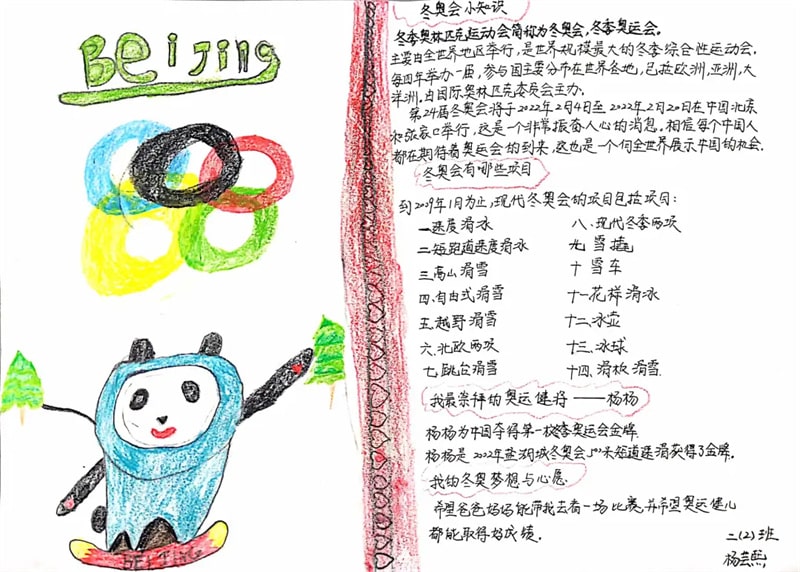 BeiJing
BEIJING
冬奥会小知识
冬季奥林匹克运动会简称为冬奥会,冬季奥运会。
主要由全世界地区举行,是世界规模最大的冬季综合性运动会,
每四年举办一届,参与国主要分布在世界各地,已拉欧洲,亚洲,大
洋洲,由国际奥林匹克委员会主办.
第24届冬奥会将于2022年2月4日至2022年2月20日在中国北京
和张家口举行,这是一个非常振奋人心的消息。相信每个中国人
都在期待着奥运会的到来,这也是一个向全世界展示中国的机会.
冬奥会有哪些项目
年1月为止,现代冬奥会的项目包括项目:
一速度滑冰
八、现代冬季两项
二短跑道速度滑冰
九雪橇
三高山滑雪
十雪车
四.自由式滑雪
十一花样滑冰
五.越野滑雪
十二.冰壶
六.北欧两项
十三.冰球
七.跳台滑雪
十四.滑板滑雪.
我最崇拜的奥运健将——杨杨
杨杨为中国夺得第一枚冬季奥运会金牌.
杨杨是2002年盐湖城冬奥会500米短道速滑获得了金牌.
我的冬奥梦想与心愿.
希望爸爸妈妈能带我去看一场比赛,并希望奥运健儿
都能取得好成绩.
二(2)班
杨芸熙